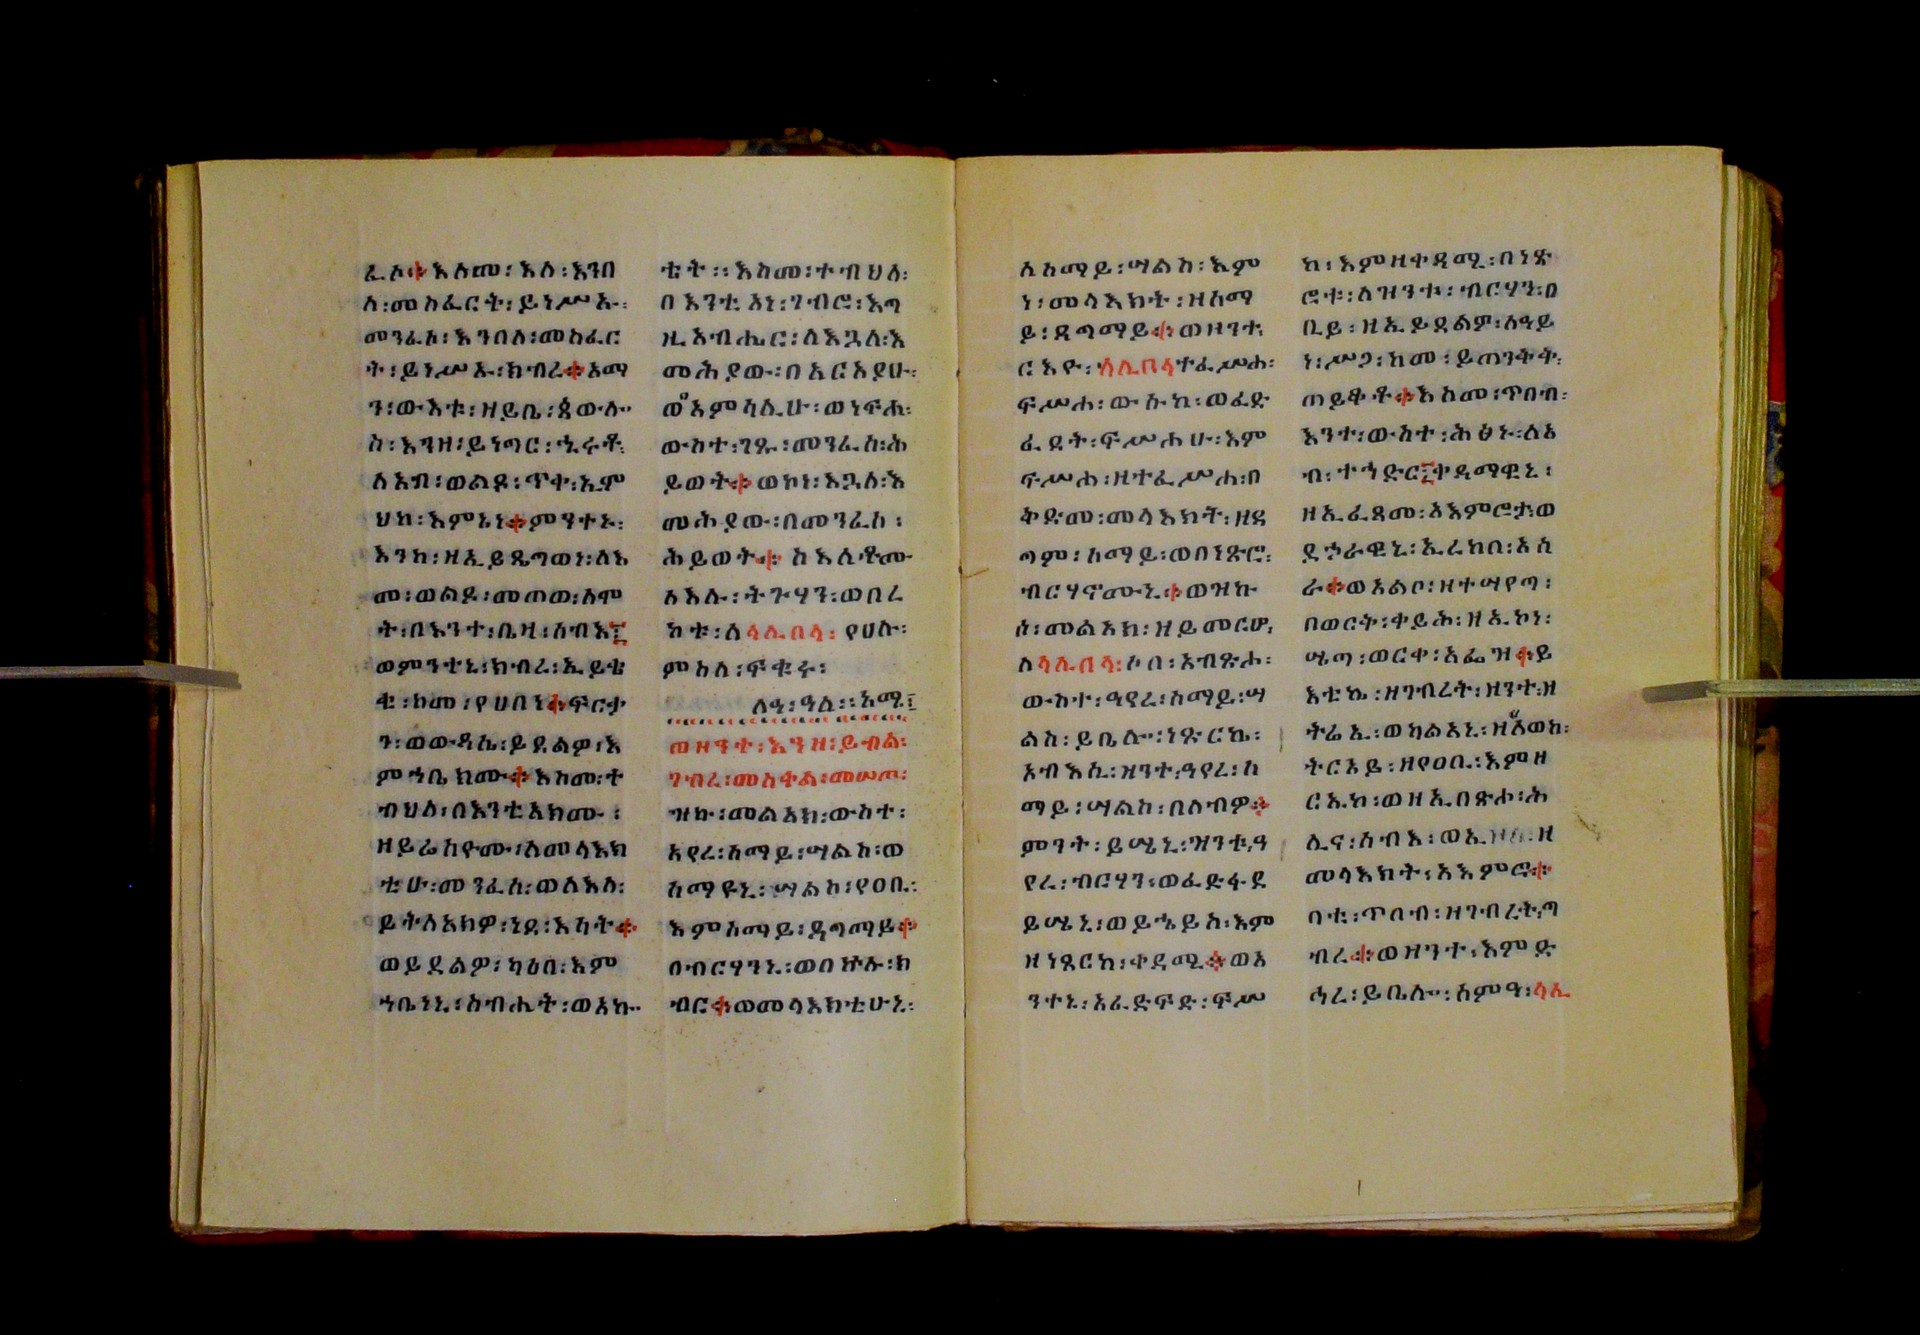 ፈስ። እስመ፡ እለ፡ እንበ
ለ፡ መስፈርት፡ ይነሥኡ፡
መንፈስ፡ እንበለ፡ መስፈር
ት፡ ይነሥኡ፡ ክብረ። አማ
ን፡ ውእቱ፡ ዘይቤ፡ ጳውሎ
ስ፡ እንዘ፡ ይነግር፡ ኂሩቶ፡
ለአብ፡ ወልዶ፡ ጥቀ፡ ኢም
ህከ፡ እምኔነ። ምንተኑ፡
እንከ፡ ዘኢይጼግወነ፡ ለእ
መ፡ ወልዶ፡ መጠወ፡ ለሞ
ት፡ በእንተ፡ ቤዛ፡ ሰብእ፤
ወምንተኒ፡ ክብረ፡ ኢይቴ
ቱ፡ ከመ፡ የሀበነ። ፍርታ
ን፡ ወውዳሴ፡ ይደልዎ፡ እ
ምኀቤክሙ። እስመ፡ ተ
ብህለ፡ በእንቲአክሙ፡
ዘይሬስዮሙ፡ ለመላእክ
ቲሁ፡ መንፈስ፡ ወለእለ፡
ይትለአክዎ፡ ነደ፡ እሳት።
ወይደልዎ፡ ካዕበ፡ እም
ኀቤነኒ፡ ስብሐት፡ ወአኰ
ቴት፡፡ እስመ፡ ተብህለ፡
በእንቲአነ፡ ገብሮ፡ እግ
ዚአብሔር፡ ለእጓለ፡ እ
መሕያው፡ በአርአያሁ፡
ወአምሳሊሁ፡ ወነፍሐ፡
ውስተ፡ ገጹ፡ መንፈሰ፡ ሕ
ይወት። ወኮነ፡ እጓለ፡ እ
መሕያው፡ በመንፈሰ፡
ሕይወት። ስእለቶሙ
ለእሉ፡ ትጉሃን፡ ወበረ
ከቱ፡ ለላሊበላ፡ የሀሉ፡
ምስለ፡ ፍቁሩ፡
ለዓ፡ ዓለ፡፡ አሜ፤
ወዘንተ፡ እንዘ፡ ይብል፡
ገብረ፡ መስቀል፡ መሠጦ፡
ዝኩ፡ መልአክ፡ ውስተ፡
አየረ፡ ሰማይ፡ ሣልስ፡ ወ
ሰማዩኒ፡ ሣልስ፡ የዐቢ፡
እምሰማይ፡ ዳግማይ።
በብርሃንኒ፡ ወበኵሉ፡ ክ
ብር። ወመላእክቲሁኒ፡
ለሰማይ፡ ሣልስ፡ እም
ነ፡ መላእክት፡ ዘሰማ
ይ፡ ዳግማይ። ወዘንተ
ርእዮ፡ ላሊበላ ተፈሥሐ፡
ፍሥሐ፡ ውኡከ፡ ወፈድ
ፈደት፡ ፍሥሐሁ፡ እም
ፍሥሐ፡ ዘተፈሥሐ፡ በ
ቅድመ፡ መላእክት፡ ዘዳ
ግም፡ ሰማይ፡ ወበነጽሮ፡
ብርሃኖሙኒ። ወዝኩ
ሰ፡ መልአክ፡ ዘይመርሆ፡
ለላሊበላ፡ ሶበ፡ አብጽሖ፡
ውስተ፡ ዓየረ፡ ሰማይ፡ ሣ
ልስ፡ ይቤሎ፡ ነጽርኬ፡
አብእሲ፡ ዝንተ፡ ዓየረ፡ ሰ
ማይ፡ ሣልስ፡ በለብዎ።
ምንት፡ ይሤኒ፡ ዝንቱ፡ ዓ
የረ፡ ብርሃን፡ ወፈድፋደ
ይሤኒ፡ ወይኄይስ፡ እም
ዘነጸርከ፡ ቀዳሚ። ወአ
ንተኒ፡ አፈድፍድ፡ ፍሥ
ከ፡ እምዘቀዳሚ፡ በነጽ
ሮቱ፡ ለዝንቱ፡ ብርሃን፡ ዐ
ቢይ፡ ዘኢይደልዎ፡ ለዓይ
ነ፡ ሥጋ፡ ከመ፡ ይጠንቅቅ፡
ጠይቆቶ። እስመ፡ ጥበብ፡
እንተ፡ ውስተ፡ ሕፅኑ፡ ለአ
ብ፡ ተኀድር፤ ቀዳማዊኒ፡
ዘኢፈጸመ፡ አእምሮታ፡ ወ
ደኃራዊኒ፡ ኢረከበ፡ አሰ
ራ። ወአልቦ፡ ዘተሣየጣ፡
በወርት፡ ቀይሕ፡ ዘኢኮነ፡
ሤጣ፡ ወርቀ፡ አፌዝ። ይ
እቲኬ፡ ዘገብረት፡ ዘንተ፡ ዘ
ትሬኢ፡ ወካልአኒ፡ ዘአወከ፡
ትርአይ፡ ዘየዐቢ፡ እምዘ
ርኢከ፡ ወዘኢበጽሖ፡ ሕ
ሊና፡ ሰብእ፡ ወኢ ዘ
መላእክት፡ አእምሮ።
ባቲ፡ ጥበብ፡ ዘገብረት፡ ግ
ብረ። ወዘንተ፡ እምድ
ኅረ፡ ይቤሎ፡ ሰምዓ፡ ላሊ